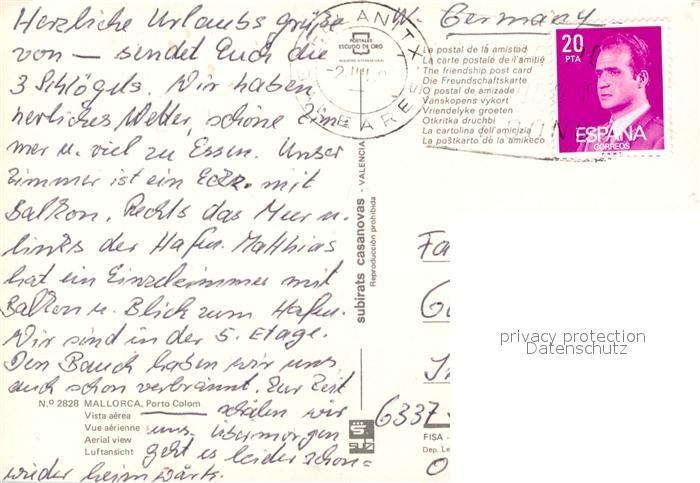 Herzliche Urlaubsgrüße
von — sendet Euch die
3 Schlögels. Wir haben
herrliches Wetter, schöne Zim-
mer u. viel zu Essen. Unser
Zimmer ist ein Eckz. mit
Balkon. Rechts das Meer u.
links der Hafen. Matthias
hat ein Einzelzimmer mit
Balkon u. Blick zum Hafen.
Wir sind in der 5. Etage.
Den Bauch haben wir uns
auch schon verbrannt. Zur Zeit
schälen wir
uns. Übermorgen
geht es leider schon
wieder heimwärts.
N.º 2828 MALLORCA, Porto Colom
Vista aérea
Vue aérienne
Aerial view
Luftansicht
subirats casanovas - VALENCIA
Reproducción prohibida
POSTALES
ESCUDO DE ORO
W. Germany
La postal de la amistad
La carte postale de l'amitié
The friendship post card
Die Freundschaftskarte
O postal de amizade
Vanskopens vykort
Vriendelyke groeten
Otkritka druchbi
La cartolina dell'amicizia
La postkarto de la amikeco
20
PTA
ESPAÑA
CORREOS
F.N.M.T.
Fa
6337
FISA -
Dep. Le
privacy protection
Datenschutz